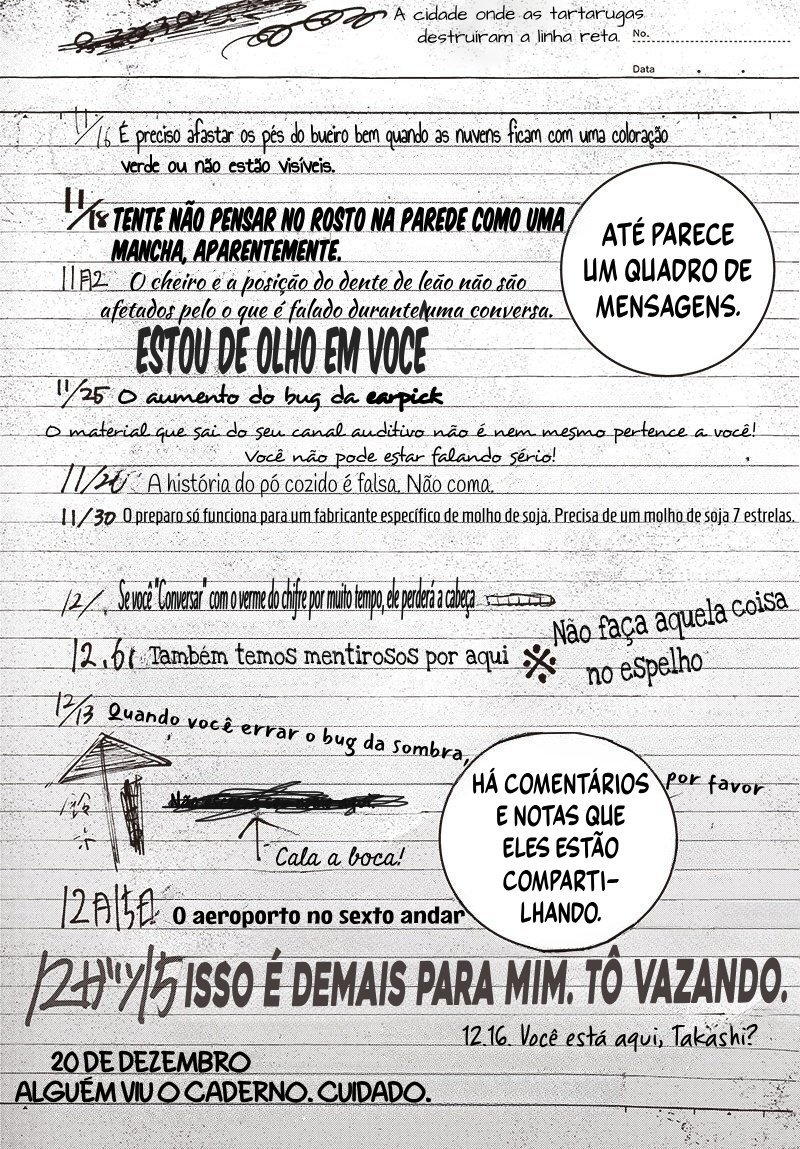 A cidade onde as tartarugas
destruíram a linha reta.
No.
Data
11/16 É preciso afastar os pés do bueiro bem quando as nuvens ficam com uma coloração
verde ou não estão visíveis.
11/18 TENTE NÃO PENSAR NO ROSTO NA PAREDE COMO UMA
MANCHA, APARENTEMENTE.
ATÉ PARECE
UM QUADRO DE
MENSAGENS.
11月2 O cheiro e a posição do dente de leão não são
afetados pelo o que é falado durante uma conversa.
ESTOU DE OLHO EM VOCÊ
11/25 O aumento do bug da earpick
O material que sai do seu canal auditivo não é nem mesmo pertence a você!
Você não pode estar falando sério!
A história do pó cozido é falsa. Não coma.
11/30 O preparo só funciona para um fabricante específico de molho de soja. Precisa de um molho de soja 7 estrelas.
12/ Se você "Conversar" com o verme do chifre por muito tempo, ele perderá a cabeça
Não faça aquela coisa
no espelho
Também temos mentirosos por aqui ※
12/13 Quando você errar o bug da sombra,
por favor
HÁ COMENTÁRIOS
E NOTAS QUE
ELES ESTÃO
COMPARTI-
LHANDO.
Cala a boca!
O aeroporto no sexto andar
12ガツ15 ISSO É DEMAIS PARA MIM. TÔ VAZANDO.
12.16. Você está aqui, Takashi?
20 DE DEZEMBRO
ALGUÉM VIU O CADERNO. CUIDADO.